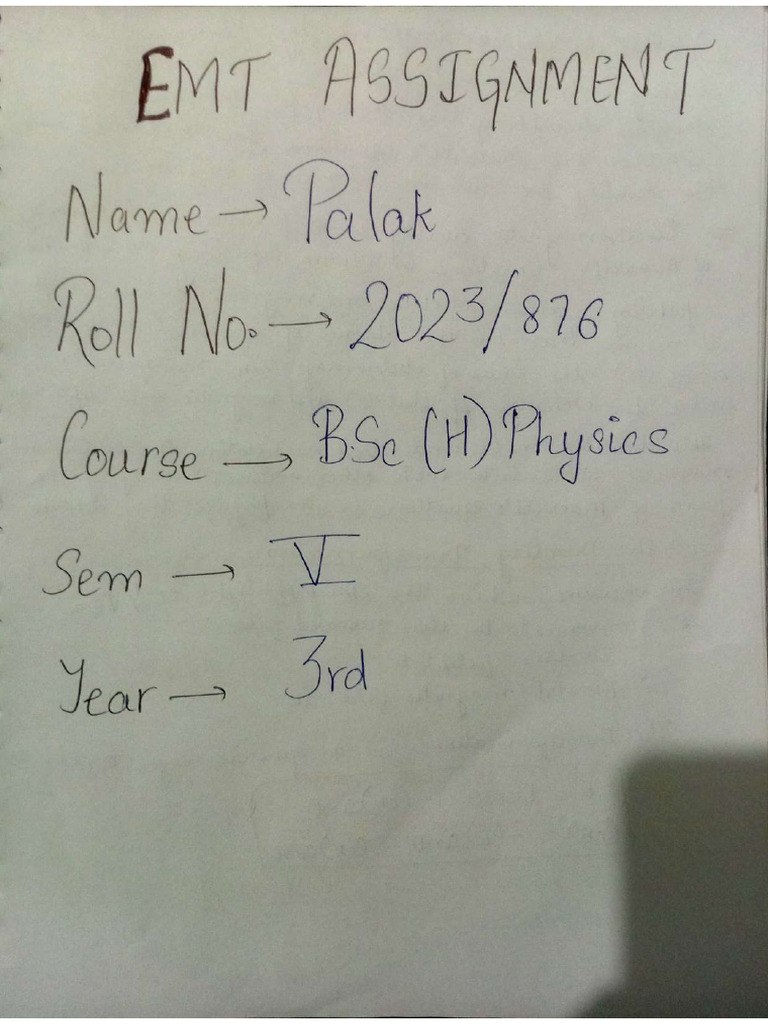 EMT ASSIGNMENT
Name → Palak
Roll No. → 2023/876
Course → BSc (H) Physics
Sem → V
Year → 3rd